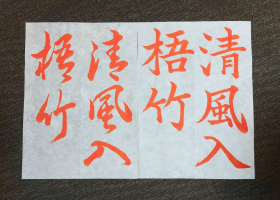 清風入
梧竹
清風入
梧竹